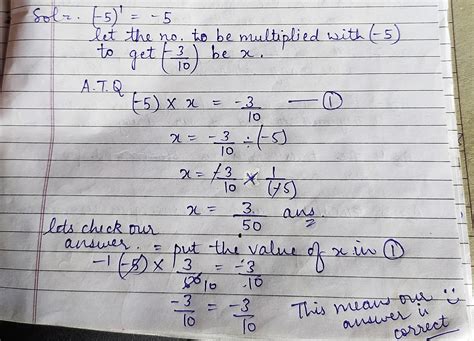 Solⁿ. (-5)¹ = -5
let the no. to be multiplied with (-5)
to get (-3/10) be x.
A.T.Q
(-5) × x = -3/10 — ①
x = -3/10 ÷ (-5)
x = -3/10 × 1/(-5)
x = 3/50 ans.
lets check our
answer. = put the value of x in ①
-1 (-5) × 3/50 10 = -3/10
-3/10 = -3/10
This means our
answer is
correct